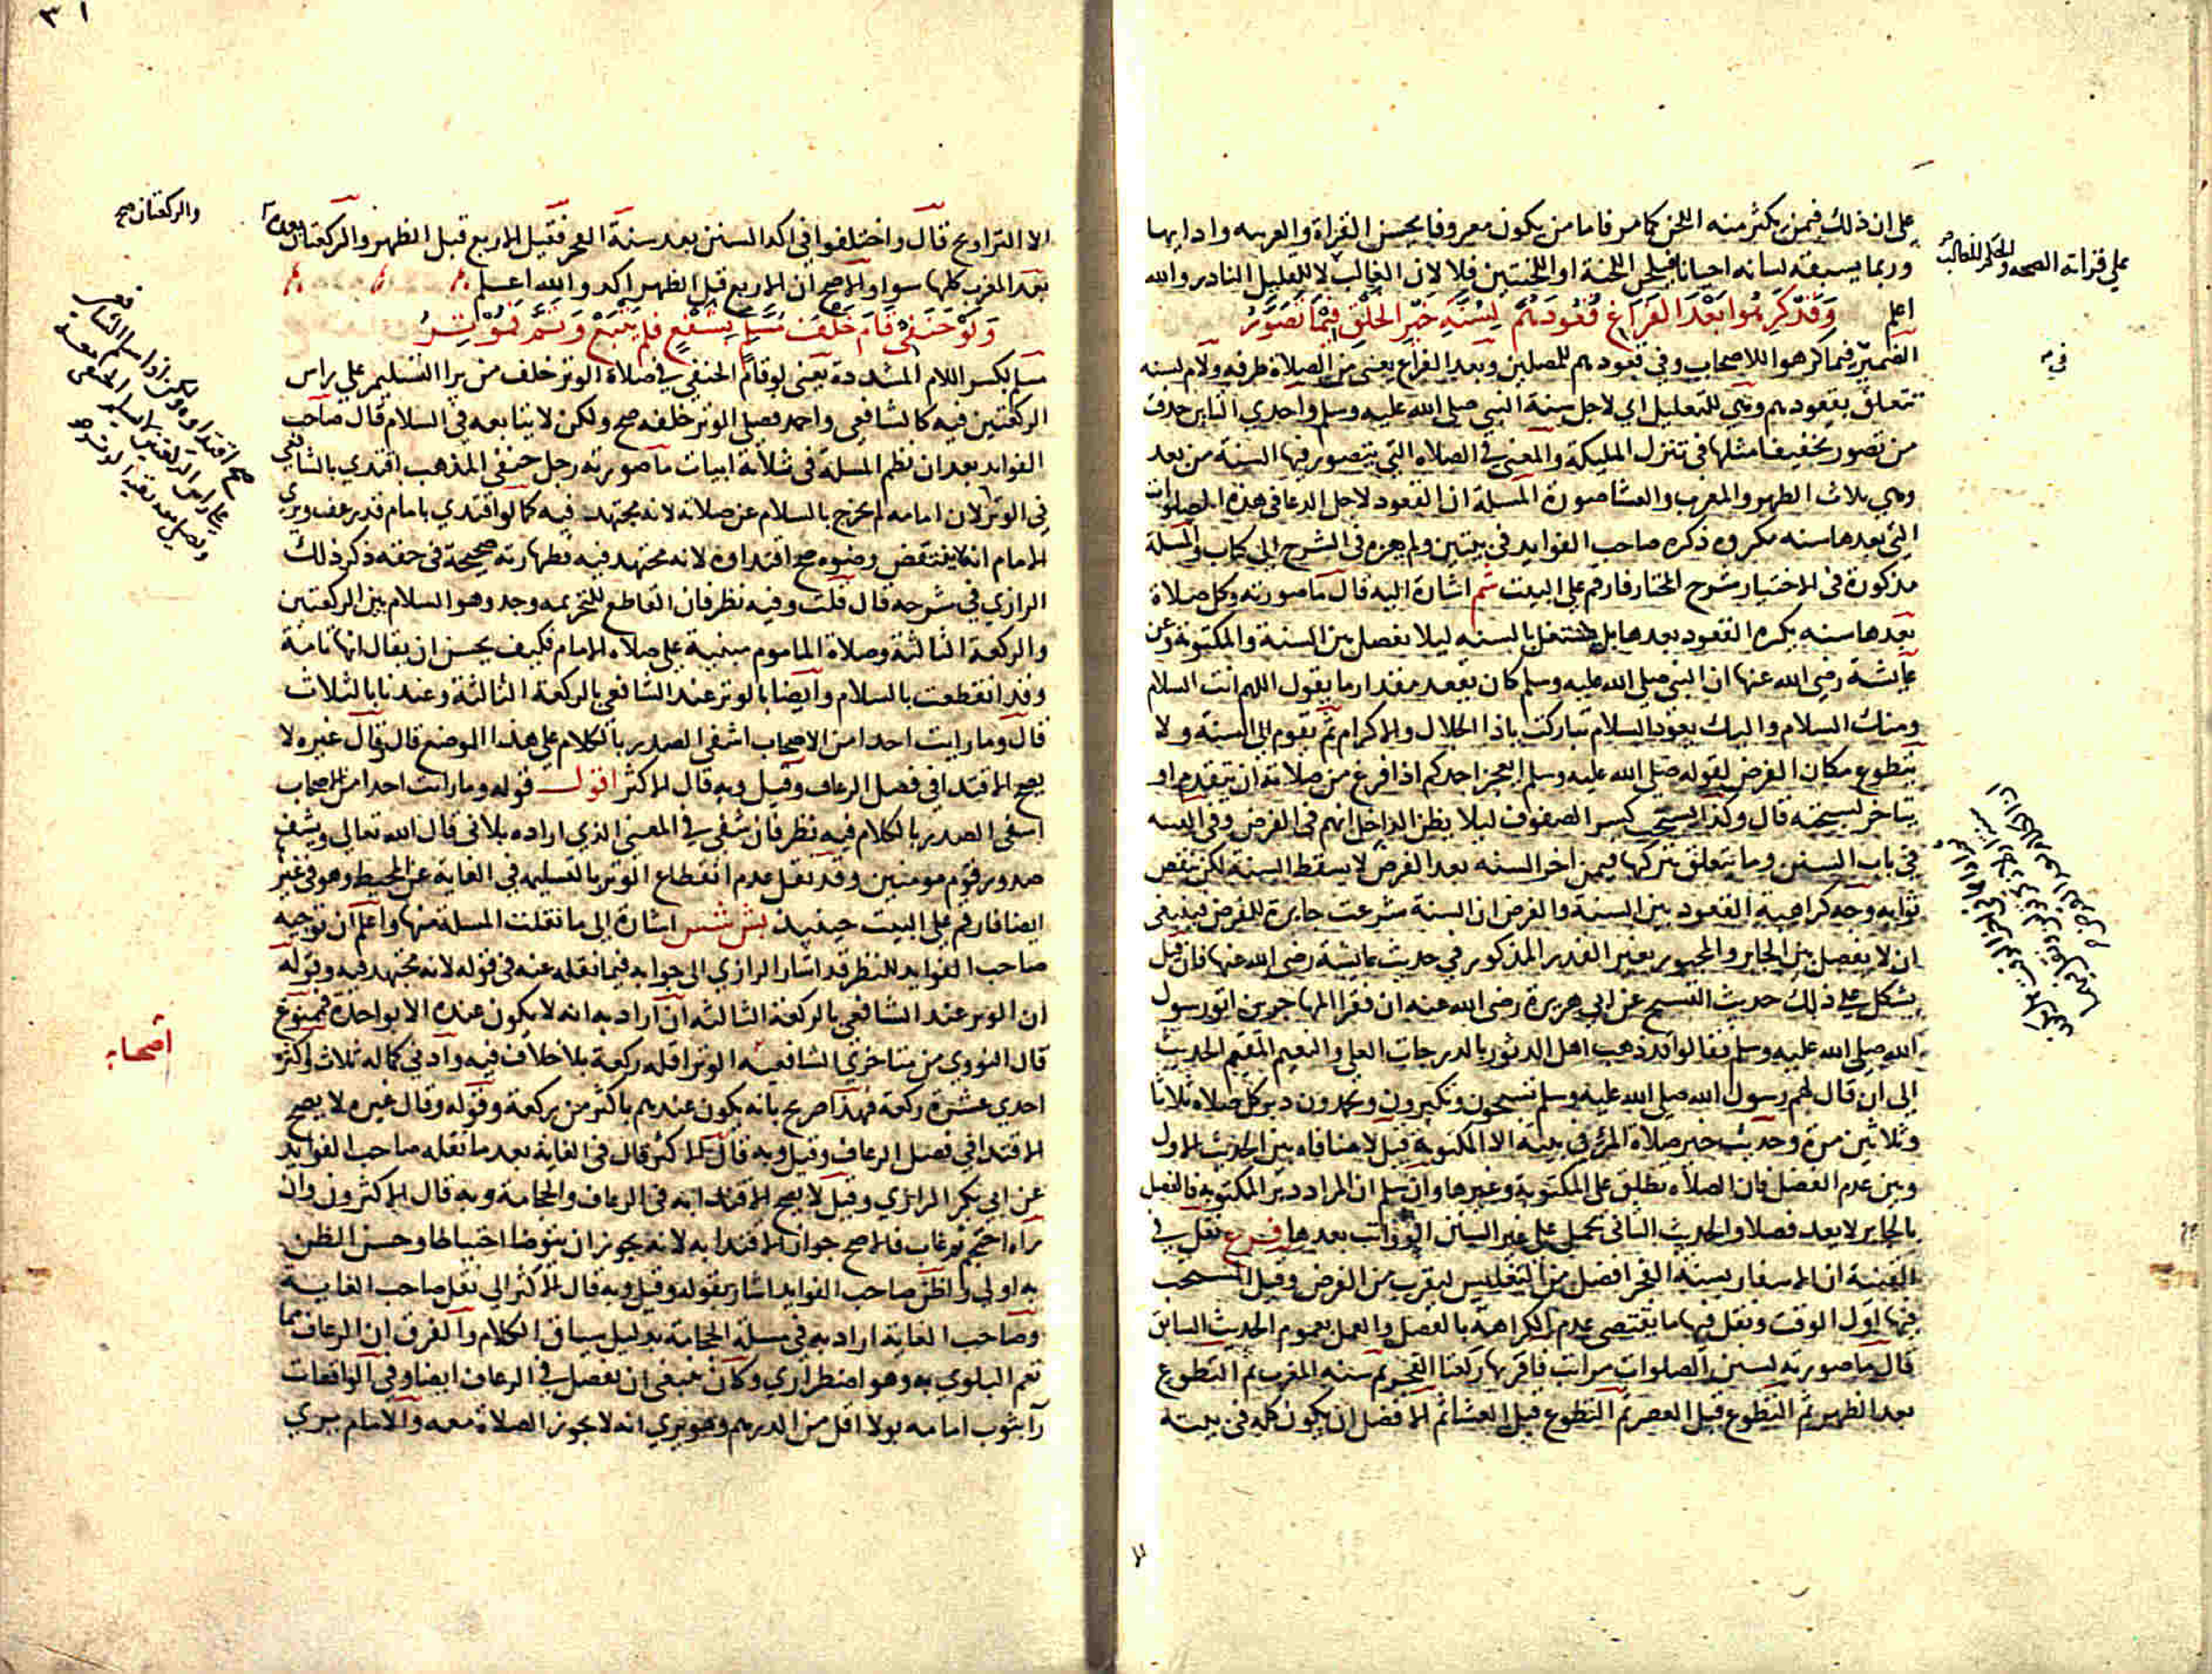 على ان ذلك فيمن يكثر منه اللحن كما مر فاما من يكون معروفا يحسن القراة والعربيه وادابها
وربما يسبقه لسانه احيانا فيلحن اللحنة او اللحنتين فلا لان الغالب لا للقليل النادر والله
على قراته الصحه والحكم للغالب
اعلم وقد كرهوا بعد الفراغ قعودهم لسنة خير الخلق فيما تصور
الضمير فيما كرهوا للاصحاب وفي قعودهم للمصلين وبعد الفراغ يعني من الصلاة ظرفه ولام لسنه
تتعلق بقعودهم وهي للتعليل اي لاجل سنة النبي صلى الله عليه وسلم واحدي التاين حذفت
من تصور تخفيفا مثلها في تنزل المليكة والمعني في الصلاه التي يتصور فيها السنة من بعد
وهي ثلاث الظهر والمغرب والعشا صورة المسلة ان القعود لاجل الدعا في هذه الصلوات
التي بعدها سنه مكروه ذكره صاحب الفوايد في بيتين ولم يعزه في الشرح الى كتاب والمسلة
مذكورة في الاختيار شرح المختار فارقم على البيت شم اشارة اليه قال ما صورته وكل صلاة
بعدها سنه يكره القعود بعدها بل يشتغل بالسنه ليلا يفصل بين السنة والمكتوبة وعن
عايشة رضي الله عنها ان النبي صلى الله عليه وسلم كان يقعد مقدار ما يقول اللهم انت السلام
ومنك السلام واليك يعود السلام تباركت ياذا الجلال والاكرام ثم يقوم الى السنة ولا
يتطوع مكان الفرض لقوله صلى الله عليه وسلم ايعجز احدكم اذا فرغ من صلاته ان يتقدم او
يتاخر لسبحته قال وكذا يستحب كسر الصفوف ليلا يظن الداخل انهم في الفرض وفي القنيه
في باب السنن وما يتعلق بتركها فيمن اخر السنه بعد الفرض لا يسقط السنه لكن ينقص
ثوابه وجه كراهية القعود بين السنة والفرض ان السنة شرعت جابرة للفرض فينبغي
ان لا يفصل بين الجابر والمجبور بغير القدر المذكور في حديث عايشة رضي الله عنها فان قيل
يشكل على ذلك حديث التسبيح عن ابي هريرة رضي الله عنه ان فقرا المهاجرين اتوا رسول
الله صلى الله عليه وسلم فقالوا قد ذهب اهل الدثور بالدرجات العلى والنعيم المقيم الحديث
الى ان قال لهم رسول الله صلى الله عليه وسلم تسبحون وتكبرون وتحمدون دبر كل صلاه ثلاثا
وثلاثين مرة وحديث خير صلاة المرء في بيته الا المكتوبة قيل لا منافاه بين الحديث الاول
وبين عدم الفصل فان الصلاه تطلق على المكتوبة وغيرها وان سلم ان المراد دبر المكتوبه فالفصل
بالجابر لا يعد فصلا والحديث الثاني يحمل على غير السنن الرواتب بعدها فرع نقل في
القنية ان الاسفار بسنة الفجر افضل من التغليس ليقرب من الفرض وقيل المستحب
فيها اول الوقت ونقل فيها ما يقتضي عدم الكراهة بالفصل والعمل بعموم الحديث السابق
قال ما صورته لسنن الصلوات مراتب فاقربها ركعتا الفجر ثم سنه المغرب ثم التطوع
بعد الظهر ثم التطوع قبل العصر ثم التطوع قبل العشا ثم الافضل ان يكون كله في بيته
الا التراويح قال واختلفوا في اكد السنن بعد سنة الفجر فقيل الاربع قبل الظهر والركعتان بعده
والركعتان صح
بعد المغرب كلها سوا والاصح ان الاربع قبل الظهر اكد والله اعلم
ولو حنفي قام خلف مسلم لشفع فلم يتبع وتم فموتر
مسلم بكسر اللام المشددة يعني لو قام الحنفي في صلاة الوتر خلف من يرا التسليم على راس
الركعتين فيه كالشافعي واحمد فصلي الوتر خلفه صح ولكن لا يتابعه في السلام قال صاحب
الفوايد بعد ان نظم المسلة في ثلاثة ابيات ما صورته رجل حنفي المذهب اقتدي بالشافعي
في الوتر لان امامه لم يخرج بالسلام عن صلاته لانه مجتهد فيه كما لو اقتدي بامام قد رعف ويري
الامام انه لا ينتقض وضوه صح اقتداوه لانه مجتهد فيه فطهارته صحيحة في حقه ذكر ذلك
الرازي في شرحه قال قلت وفيه نظر فان القاطع للتحريمه وجد وهو السلام بين الركعتين
والركعة الثالثة وصلاة الماموم مبنية على صلاه الامام فكيف يحسن ان يقال انها تامة
وقد انقطعت بالسلام وايضا بالوتر عند الشافعي بالركعة الثالثة وعندنا بالثلاث
قال وما رايت احدا من الاصحاب اشفى الصدر بالكلام على هذا الموضع قال وقال غيره لا
يصح الاقتدا في فصل الرعاف وقيل وبه قال الاكثر اقول قوله وما رايت احدا من الاصحاب
اشفى الصدر بالكلام فيه نظر فان شفي في المعنى الذي اراده ثلاثي قال الله تعالى ويشف
صدور قوم مومنين وقد نقل عدم انقطاع الوتر بالتسليم في الغاية عن المحيط وهو في غير
ايضا فارقم على البيت حينيذ اشارة الى ما نقلت المسلة منها واعلم ان توجيه
صاحب الفوايد للنظر قد اشار الرازي الى جوابه فيما نقله عنه في قوله لانه مجتهد فيه وقوله
ان الوتر عند الشافعي بالركعة الثالثه ان اراد به انه لا يكون عنده الا بواحدة فممنوع
قال النووي من متاخري الشافعيه الوتر اقله ركعة بلا خلاف فيه وادني كماله ثلاث واكثره
اصحابه
احدي عشرة ركعة فهذا صريح بانه يكون عندهم باكثر من ركعة وقوله وقال غيره لا يصح
الاقتدا في فصل الرعاف وقيل وبه قال الاكثر قال في الغاية بعد ما نقله صاحب الفوايد
عن ابي بكر الرازي وقيل لا يصح الاقتدا به في الرعاف والحجامة وبه قال الاكثرون وان
راه احتجم ثم غاب فالاصح جواز الاقتدا به لانه يجوز ان يتوضا احتياطا وحسن الظن
به اولى واظن صاحب الفوايد اشار بقوله وقيل وبه قال الاكثر الى نقل صاحب الغايه
وصاحب الغاية اراد به في مسلة الحجامة بدليل سياق الكلام والفرق ان الرعاف مما
تعم البلوي به وهو اضطراري وكان ينبغي ان يفصل في الرعاف ايضا وفي الواقعات
رأ بثوب امامه بولا اقل من الدرهم وهو يري انه لا يجوز الصلاة معه والامام يري